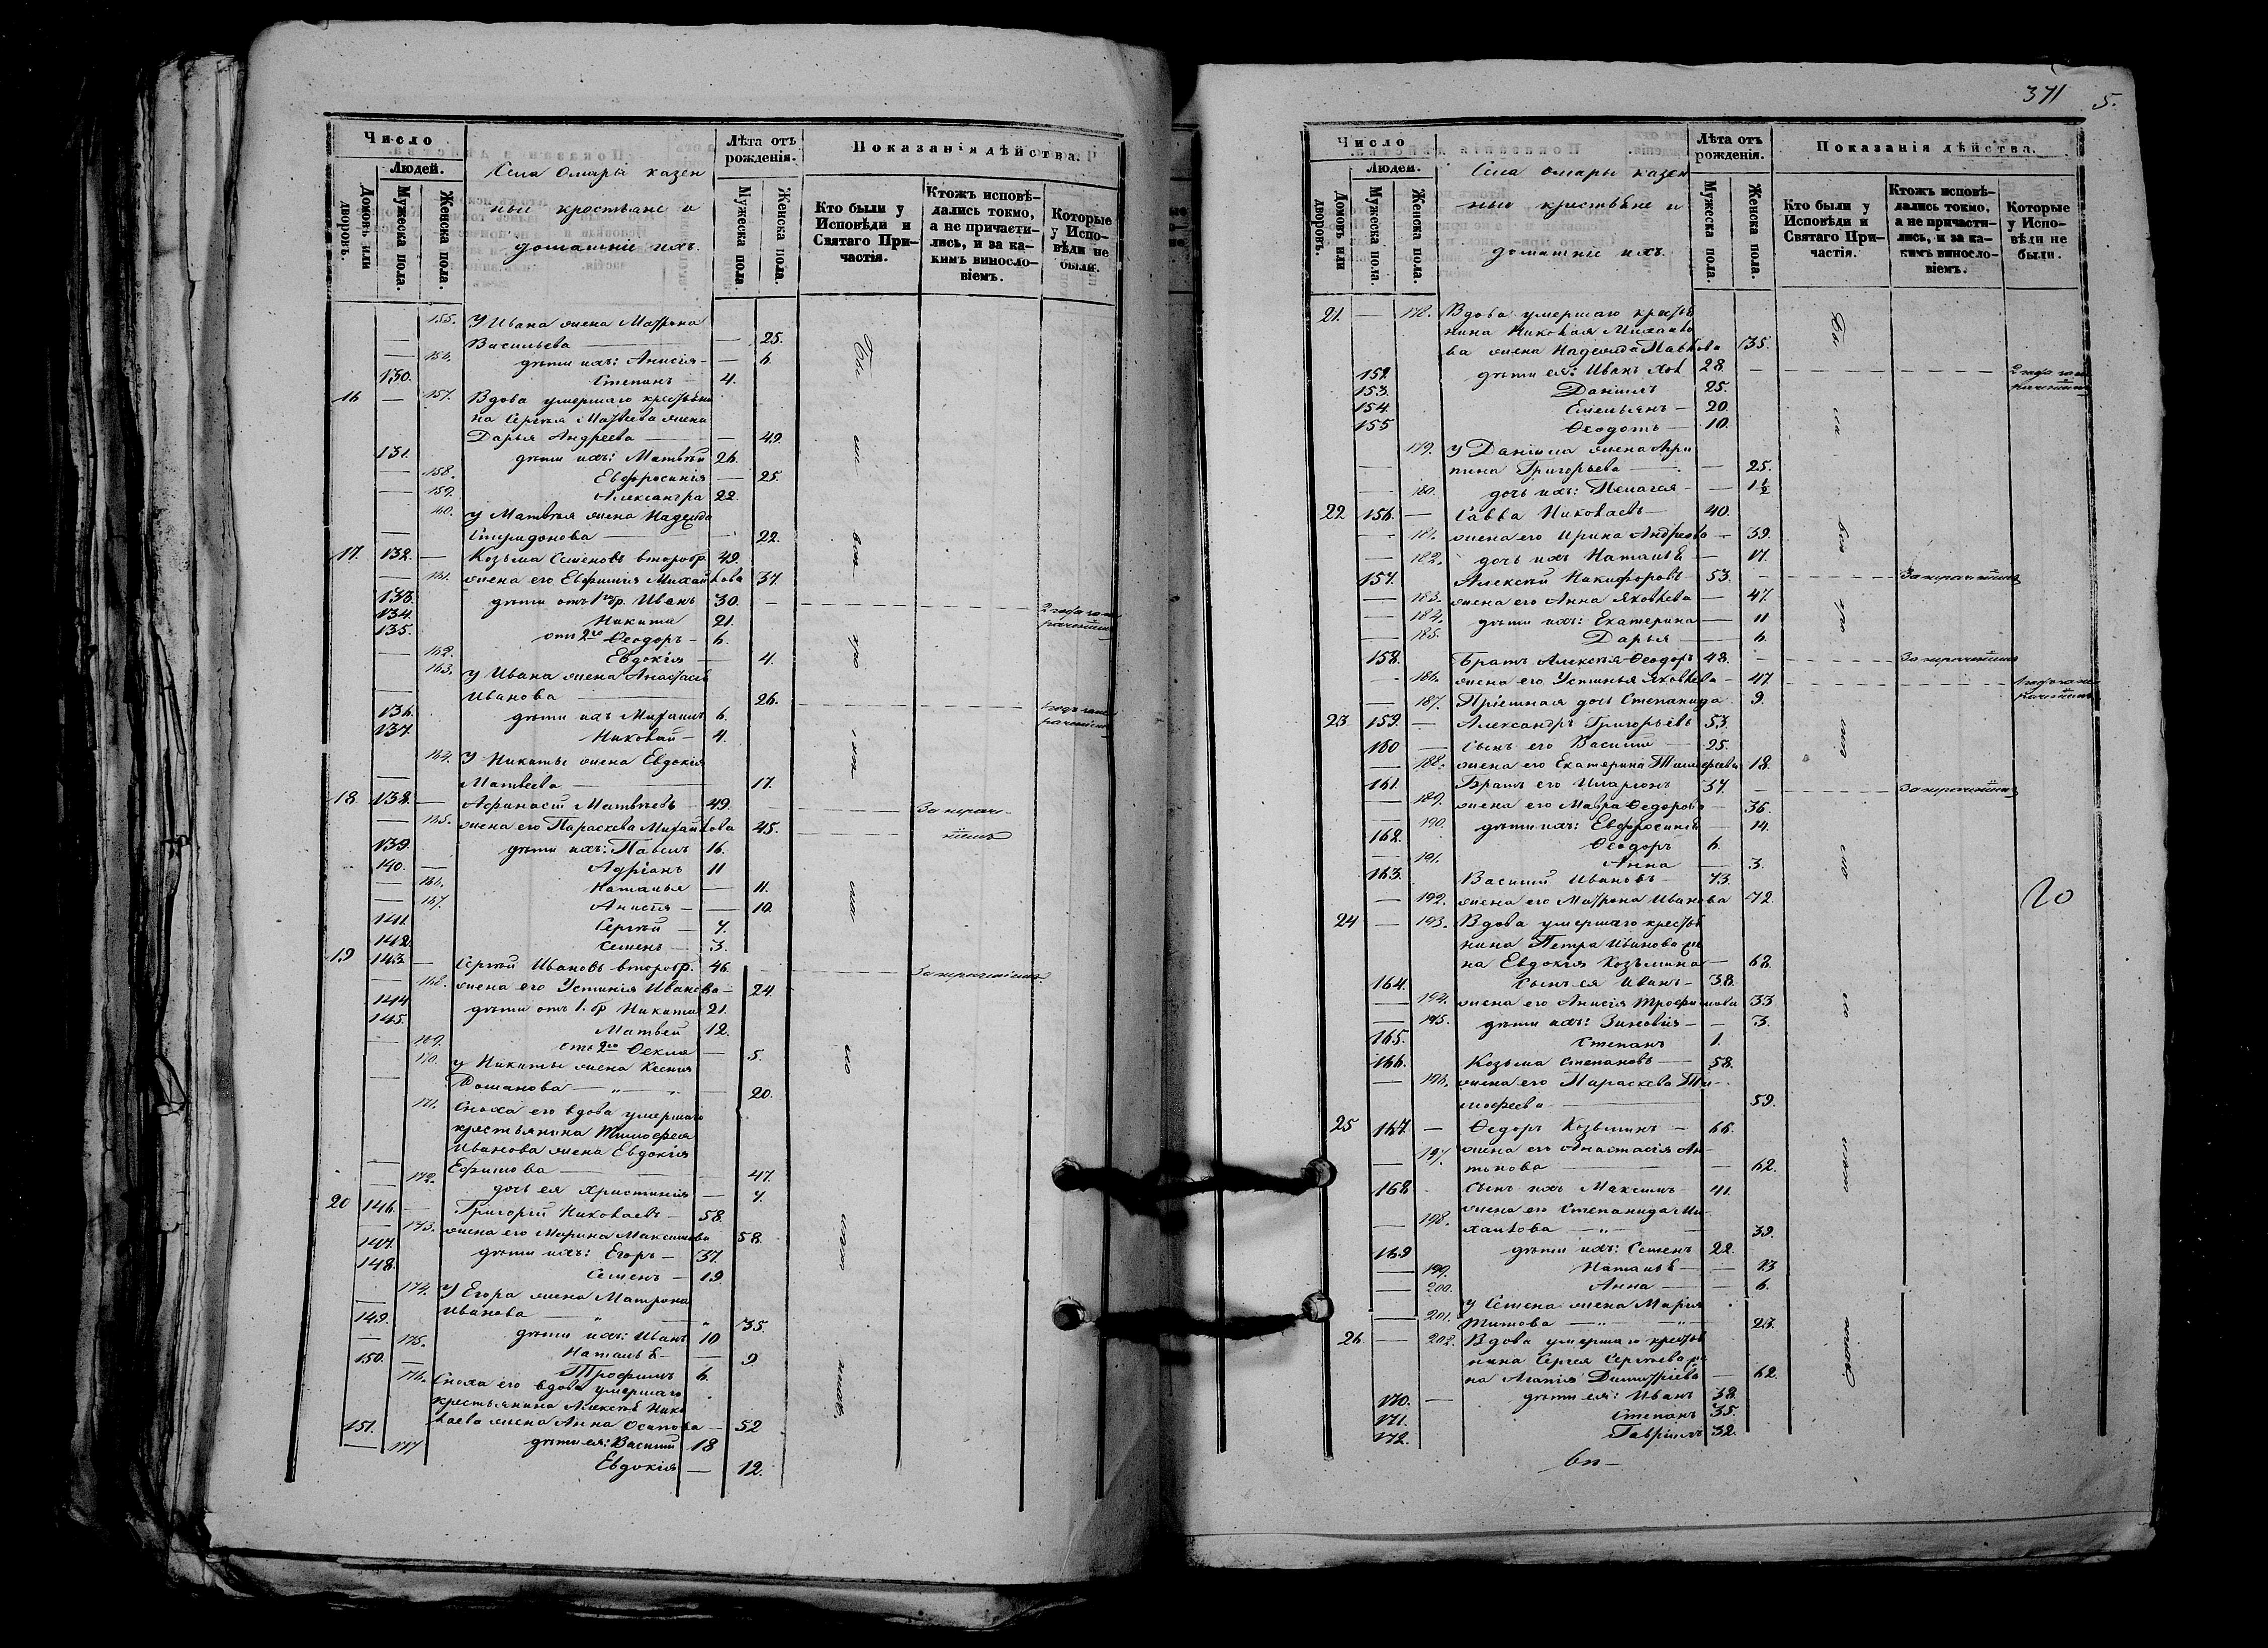 Число
Людей.
Домовъ или дворовъ.
Мужеска пола.
Женска пола.
Села Омары казен
ные крестьяне и
домашніе ихъ.
Лѣта отъ рожденія.
Мужеска пола.
Женска пола.
Показанія дѣйства.
Кто были у Исповѣди и Святаго Причастія.
Ктожъ исповѣдались токмо, а не причастились, и за какимъ винословіемъ.
Которые у Исповѣди не были.
155. У Ивана жена Матрона
Васильева — 25.
156. дѣти ихъ: Анисія — 6.
130. Степанъ 4.
16 — 157. Вдова умершаго крестьяни
на Сергѣя Матвѣева жена
Дарья Андреева — 49.
131. дѣти ихъ: Матвѣй 26.
158. Евфросинія — 25.
159. Александра 22.
160. у Матвѣя жена Надежда
Спиридонова — 22.
17. 132. — Козьма Семеновъ второбр. 49.
161. жена его Евфимія Михайлова 37.
133. дѣти отъ 1го бр. Иванъ 30.
134. Никита 21.
135. отъ 2го Ѳеодоръ — 6.
162. Евдокія — 4.
163. у Ивана жена Анастасія
Иванова — 26.
136. дѣти ихъ Михаилъ 6.
137. Николай — 4.
164. У Никиты жена Евдокія
Матвеева — 17.
18 138. — Афанасій Матвѣевъ 49. — За нерачи-
165. жена его Параскева Михайлова 45. ніемъ
139. дѣти ихъ: Павелъ 16
140. — Адріанъ 11
166. Наталья — 11.
167. Анисія — 10.
141. Сергѣй — 7.
142. Семенъ — 3.
19 143. — Сергѣй Ивановъ второбр. 46. — За нераченіемъ
168. жена его Устинія Иванова — 24.
144. дѣти отъ 1. бр Никита 21.
145. Матвей 12.
169. отъ 2го Ѳекла — 5.
170. у Никиты жена Ксенія
Романова — 20.
171. Сноха его вдова умершаго
крестьянина Тимофея
Иванова жена Евдокія
Ефимова — 47.
172. дочь ея Христинія — 7.
20 146. — Григорій Николаевъ — 58.
173. жена его Марина Максимова 58.
147. дѣти ихъ: Егоръ — 37.
148. Семенъ — 19
174. У Егора жена Матрона
Иванова — 35.
149. дѣти ихъ: Иванъ 10
175. Наталья — 9.
150. Трофимъ 6.
176. Сноха его вдова умершаго
крестьянина Алексѣя Нико
лаева жена Анна Осипова — 52
151. дѣти ея: Василій 18
177 Евдокія — 12.
371 5.
Число
Людей.
Домовъ или дворовъ.
Мужеска пола.
Женска пола.
Села Омары казен
ные крестьяне и
домашніе ихъ.
Лѣта отъ рожденія.
Мужеска пола.
Женска пола.
Показанія дѣйства.
Кто были у Исповѣди и Святаго Причастія.
Ктожъ исповѣдались токмо, а не причастились, и за какимъ винословіемъ.
Которые у Исповѣди не были.
21. — 178. Вдова умершаго крестья
нина Николая Михайло
ва жена Надежда Павлова 35.
152 дѣти ея: Иванъ хол 28.
153. Даніилъ 25.
154. Емельянъ — 20.
155 Ѳеодотъ — 10.
179. у Даніила жена Агри
пина Григорьева — 25.
180. дочь ихъ: Пелагея — 1½
22 156. — Савва Николаевъ — 40.
181. жена его Ирина Андреева — 39.
182. дочь ихъ Наталья — 17.
157. Алексѣй Никифоровъ 53. — За нераченіемъ
183. жена его Анна Яковлева — 47.
184. дѣти ихъ: Екатерина — 11
185. Дарья — 6.
158. Братъ Алексѣя Ѳеодоръ 48. — За нераченіемъ
186. жена его Устинья Яковлева — 47
187. Пріемная дочь Степанида 9.
23 159. — Александръ Григорьевъ 53.
160 — Сынъ его Василій — 25.
188. жена его Екатерина Тимофеева 18.
161. Братъ его Иларіонъ 37. — За нераченіемъ
189. жена его Мавра Ѳедорова — 36.
190. дѣти ихъ: Евфросинія — 14.
162. Ѳеодоръ 6.
191. Анна — 3.
163. Василій Ивановъ — 73.
192. жена его Матрона Иванова 72.
20
24 — 193. Вдова умершаго крестья
нина Петра Иванова же
на Евдокія Козьмина — 68.
164. Сынъ ея Иванъ — 38.
194. жена его Анисія Трофимова 33
195. дѣти ихъ: Зиновія — 3.
165. Степанъ 1.
166. Козьма Степановъ — 58.
196. жена его Параскева Ти-
мофеева — 59.
25 167. — Ѳедоръ Козьминъ — 66.
197. жена его Анастасія Ан-
тонова — 62.
168 Сынъ ихъ Максимъ 41.
198. жена его Степанида Ми-
хайлова — 39.
169 дѣти ихъ: Семенъ 22.
199. Наталья — 13
200. Анна — 6.
201. у Семена жена Марія
Титова — 23.
26. — 202. Вдова умершаго крестья
нина Сергея Сергѣева же
на Агапія Димитріева — 62.
170. — дѣти ея: Иванъ 38.
171. Степанъ 35.
172. Гавріилъ 32.